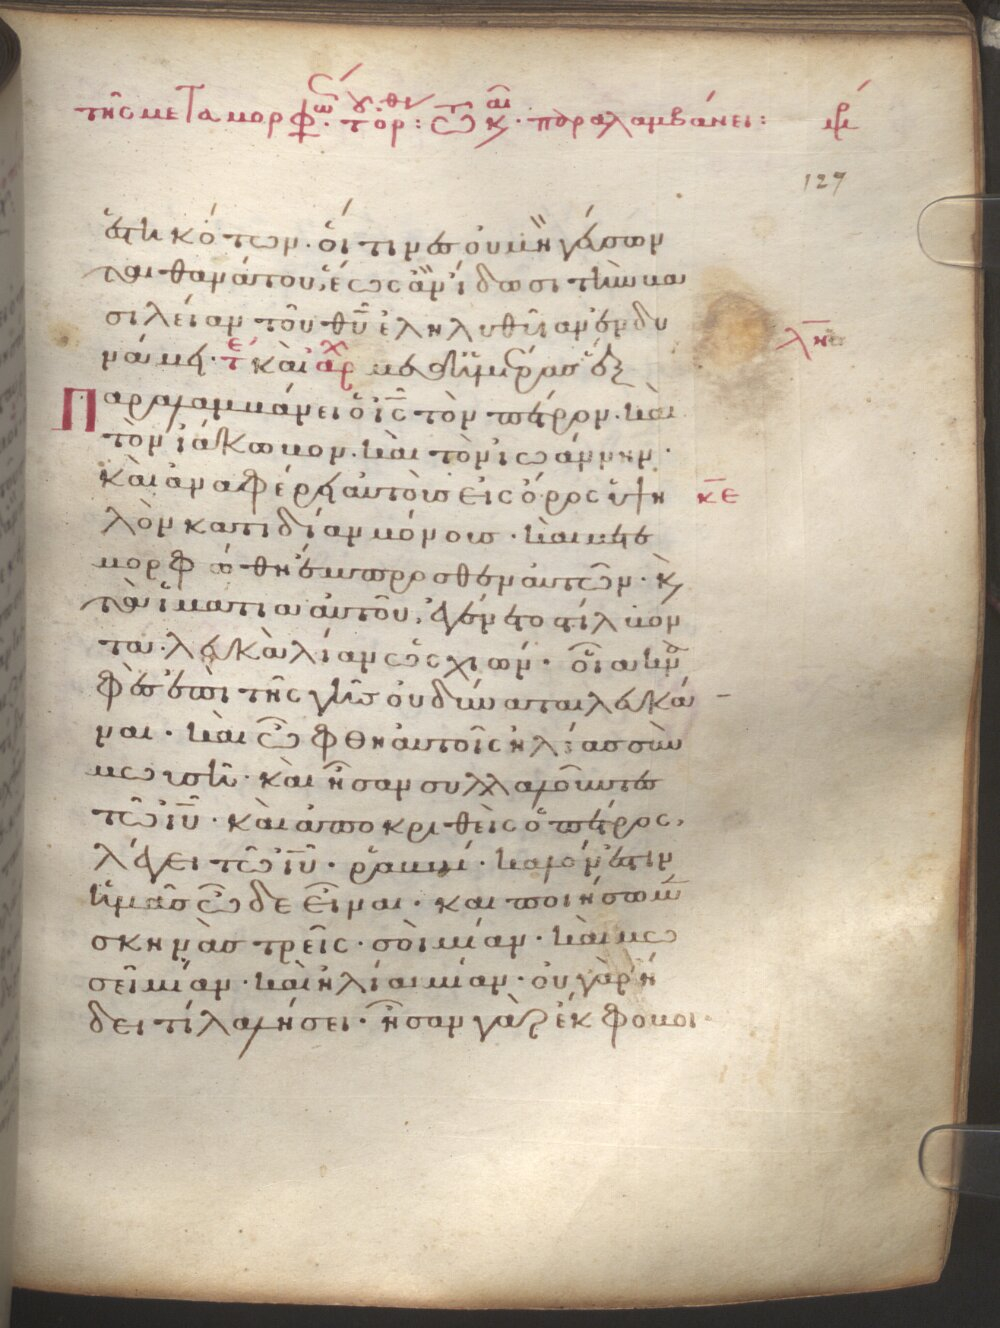 τῆς μεταμορφώ τὸ ὄρ: τῶ κ. παραλαμβάνει:
127
ἑστηκότων· οἵτινες οὐ μὴ γεύσων
ται θανάτου, ἕως ἂν ἴδωσι τὴν βα
σιλείαν τοῦ θῡ ἐληλυθυῖαν ἐν δυ
νάμει·
Παραλαμβάνει ὁ ις τὸν πέτρον· καὶ
τὸν ἰάκωβον· καὶ τὸν ἰωάννην·
καὶ ἀναφέρει αὐτοὺς εἰς ὄρος ὑψη
λὸν κατιδίαν μόνους· καὶ μετε
μορφώθη ἔμπροσθεν αὐτῶν· κ
τὰ ἱμάτια αὐτοῦ, ἐγένετο στίλβον
τα· λευκὰ λίαν ὡς χιών· οἷα κν
φεὺς ἐπὶ τῆς γῆς οὐ δύναται λευκά
ναι· καὶ ὤφθη αὐτοῖς ἠλίας σὺν
μωυσῆ· καὶ ἦσαν συλλαλοῦντες
τῶ ιῡ· καὶ ἀποκριθεὶς ὁ πέτρος,
λέγει τῶ ιῡ· ῥαββί· καλόν ἐστιν
ἡμᾶς ὧδε εἶναι· καὶ ποιήσωμ
σκηνὰς τρεῖς· σοὶ μίαν· καὶ μω
σεῖ μίαν· καὶ ἠλία μίαν· οὐ γὰρ ἤ
δει τί λαλήσει· ἦσαν γὰρ ἔκφοβοι·
κε